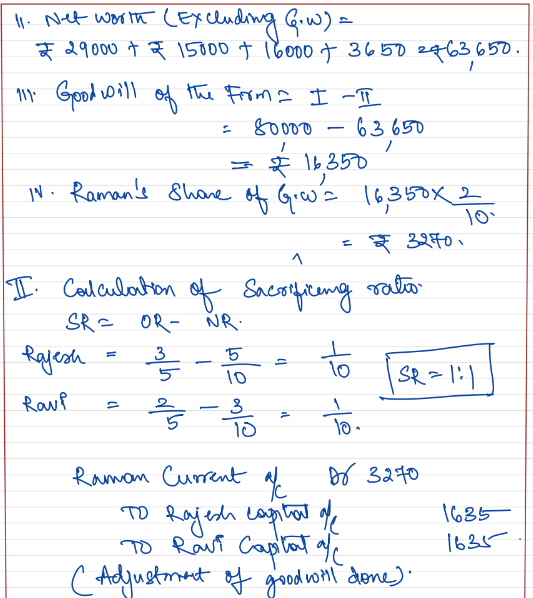 11. Net worth (Excluding G.W) =
₹ 29000 + ₹ 15000 + 16000 + 3650 = ₹63,650.
111. Goodwill of the Firm = I - II
= 80,000 - 63,650
= ₹ 16,350
IV. Raman's Share of G.W = 16,350 × 2/10.
= ₹ 3270.
II. Calculation of Sacrificing ratio.
SR = OR - NR.
Rajesh = 3/5 - 5/10 = 1/10
SR = 1:1
Ravi = 2/5 - 3/10 = 1/10.
Raman Current a/c Dr 3270
TO Rajesh Capital a/c 1635
TO Ravi Capital a/c 1635.
(Adjustment of goodwill done).